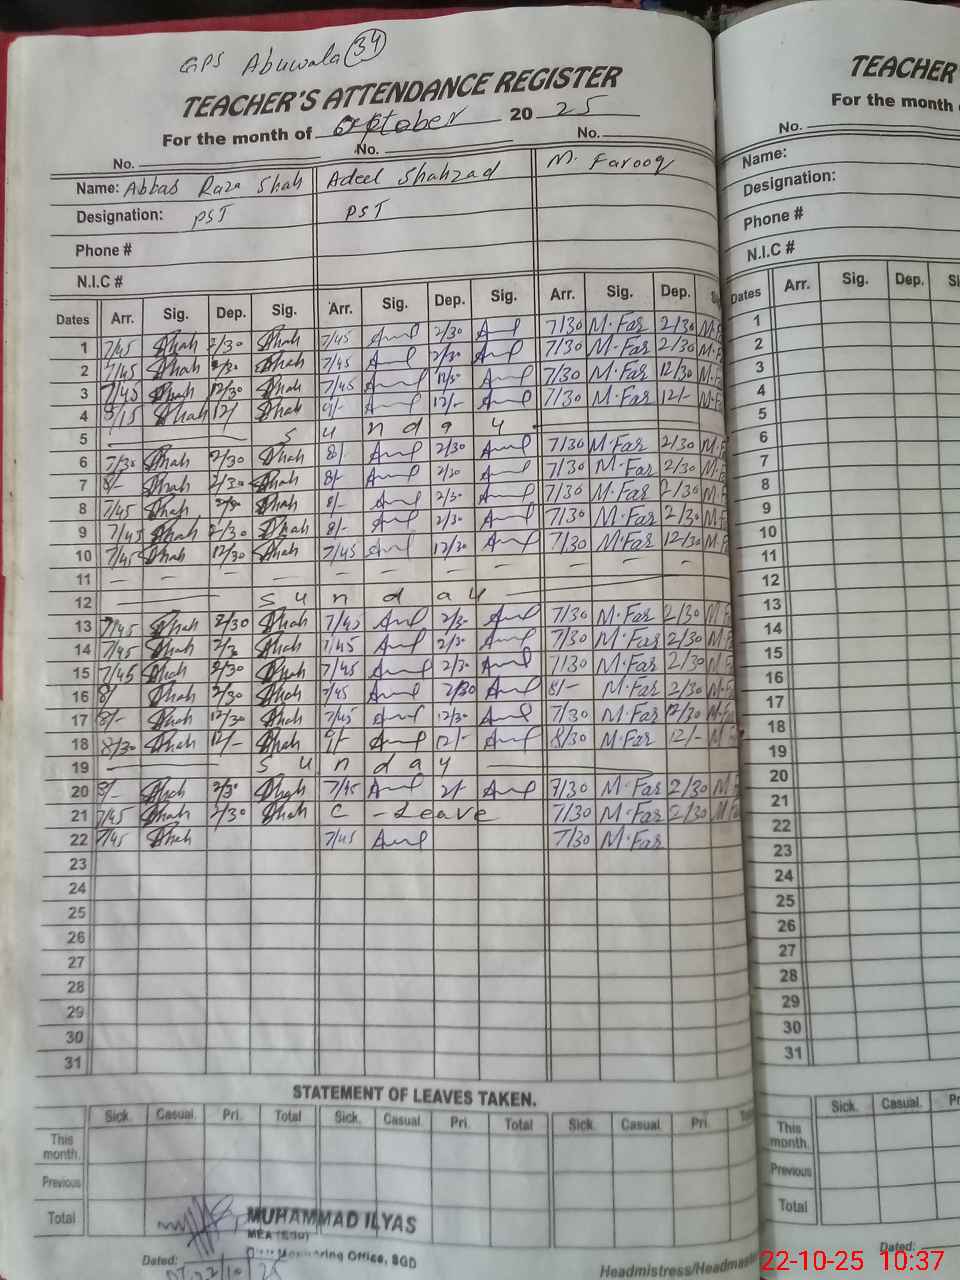 GPS Abuwala 34
TEACHER'S ATTENDANCE REGISTER
For the month of October 2025
No. No. No.
Name: Abbas Raza Shah Adeel Shahzad M. Farooq
Designation: PST PST
Phone #
N.I.C #
Dates Arr. Sig. Dep. Sig. Arr. Sig. Dep. Sig. Arr. Sig. Dep.
1 7/45 Shah 2/30 Shah 7/45 2/30 7/30 M.Far 2/30 M.F
2 7/45 Shah 2/30 Shah 7/45 2/30 7/30 M.Far 2/30 M.
3 7/45 Shah 12/30 Shah 7/45 12/30 7/30 M.Far 12/30 M.F
4 Shah 12/- Shah 12/- 7/30 M.Far 12/- M.F
5 Sunday
6 7/30 Shah 2/30 Shah 8/- 2/30 7/30 M.Far 2/30 M.F
7 8/- Shah 2/30 Shah 8/- 2/30 7/30 M.Far 2/30 M.F
8 7/45 Shah 2/30 Shah 8/- 2/30 7/30 M.Far 2/30 M.F
9 7/45 Shah 2/30 Shah 8/- 2/30 7/30 M.Far 2/30 M.F
10 7/45 Shah 12/30 Shah 7/45 12/30 7/30 M.Far 12/30 M.F
11 – – – – – – – – – – –
12 Sunday
13 7/45 Shah 2/30 Shah 7/45 2/30 7/30 M.Far 2/30 M.F
14 7/45 Shah Shah 7/45 2/30 7/30 M.Far 2/30 M.F
15 7/45 Shah 2/30 Shah 7/45 2/30 7/30 M.Far 2/30 M.F
16 8/ Shah 2/30 Shah 7/45 2/30 8/- M.Far 2/30 M.F
17 8/- Shah 12/30 Shah 7/45 12/30 7/30 M.Far 12/30 M.F
18 8/30 Shah 12/- Shah 12/- 8/30 M.Far 12/- M.F
19 Sunday
20 8/- Shah 2/30 Shah 7/45 7/30 M.Far 2/30 M.F
21 7/45 Shah 2/30 Shah C - Leave 7/30 M.Far 2/30 M.F
22 7/45 Shah 7/45 7/30 M.Far
23
24
25
26
27
28
29
30
31
STATEMENT OF LEAVES TAKEN.
Sick. Casual. Pri. Total Sick. Casual. Pri. Total Sick. Casual. Pri.
This month.
Previous
Total
MUHAMMAD ILYAS
MEA
Monitoring Office, SGD
Dated: 22/10/25
Headmistress/Headmaster
TEACHER
For the month
No.
Name:
Designation:
Phone #
N.I.C #
Dates Arr. Sig. Dep.
1
2
3
4
5
6
7
8
9
10
11
12
13
14
15
16
17
18
19
20
21
22
23
24
25
26
27
28
29
30
31
Sick. Casual.
This month.
Previous
Total
Dated:
22-10-25 10:37